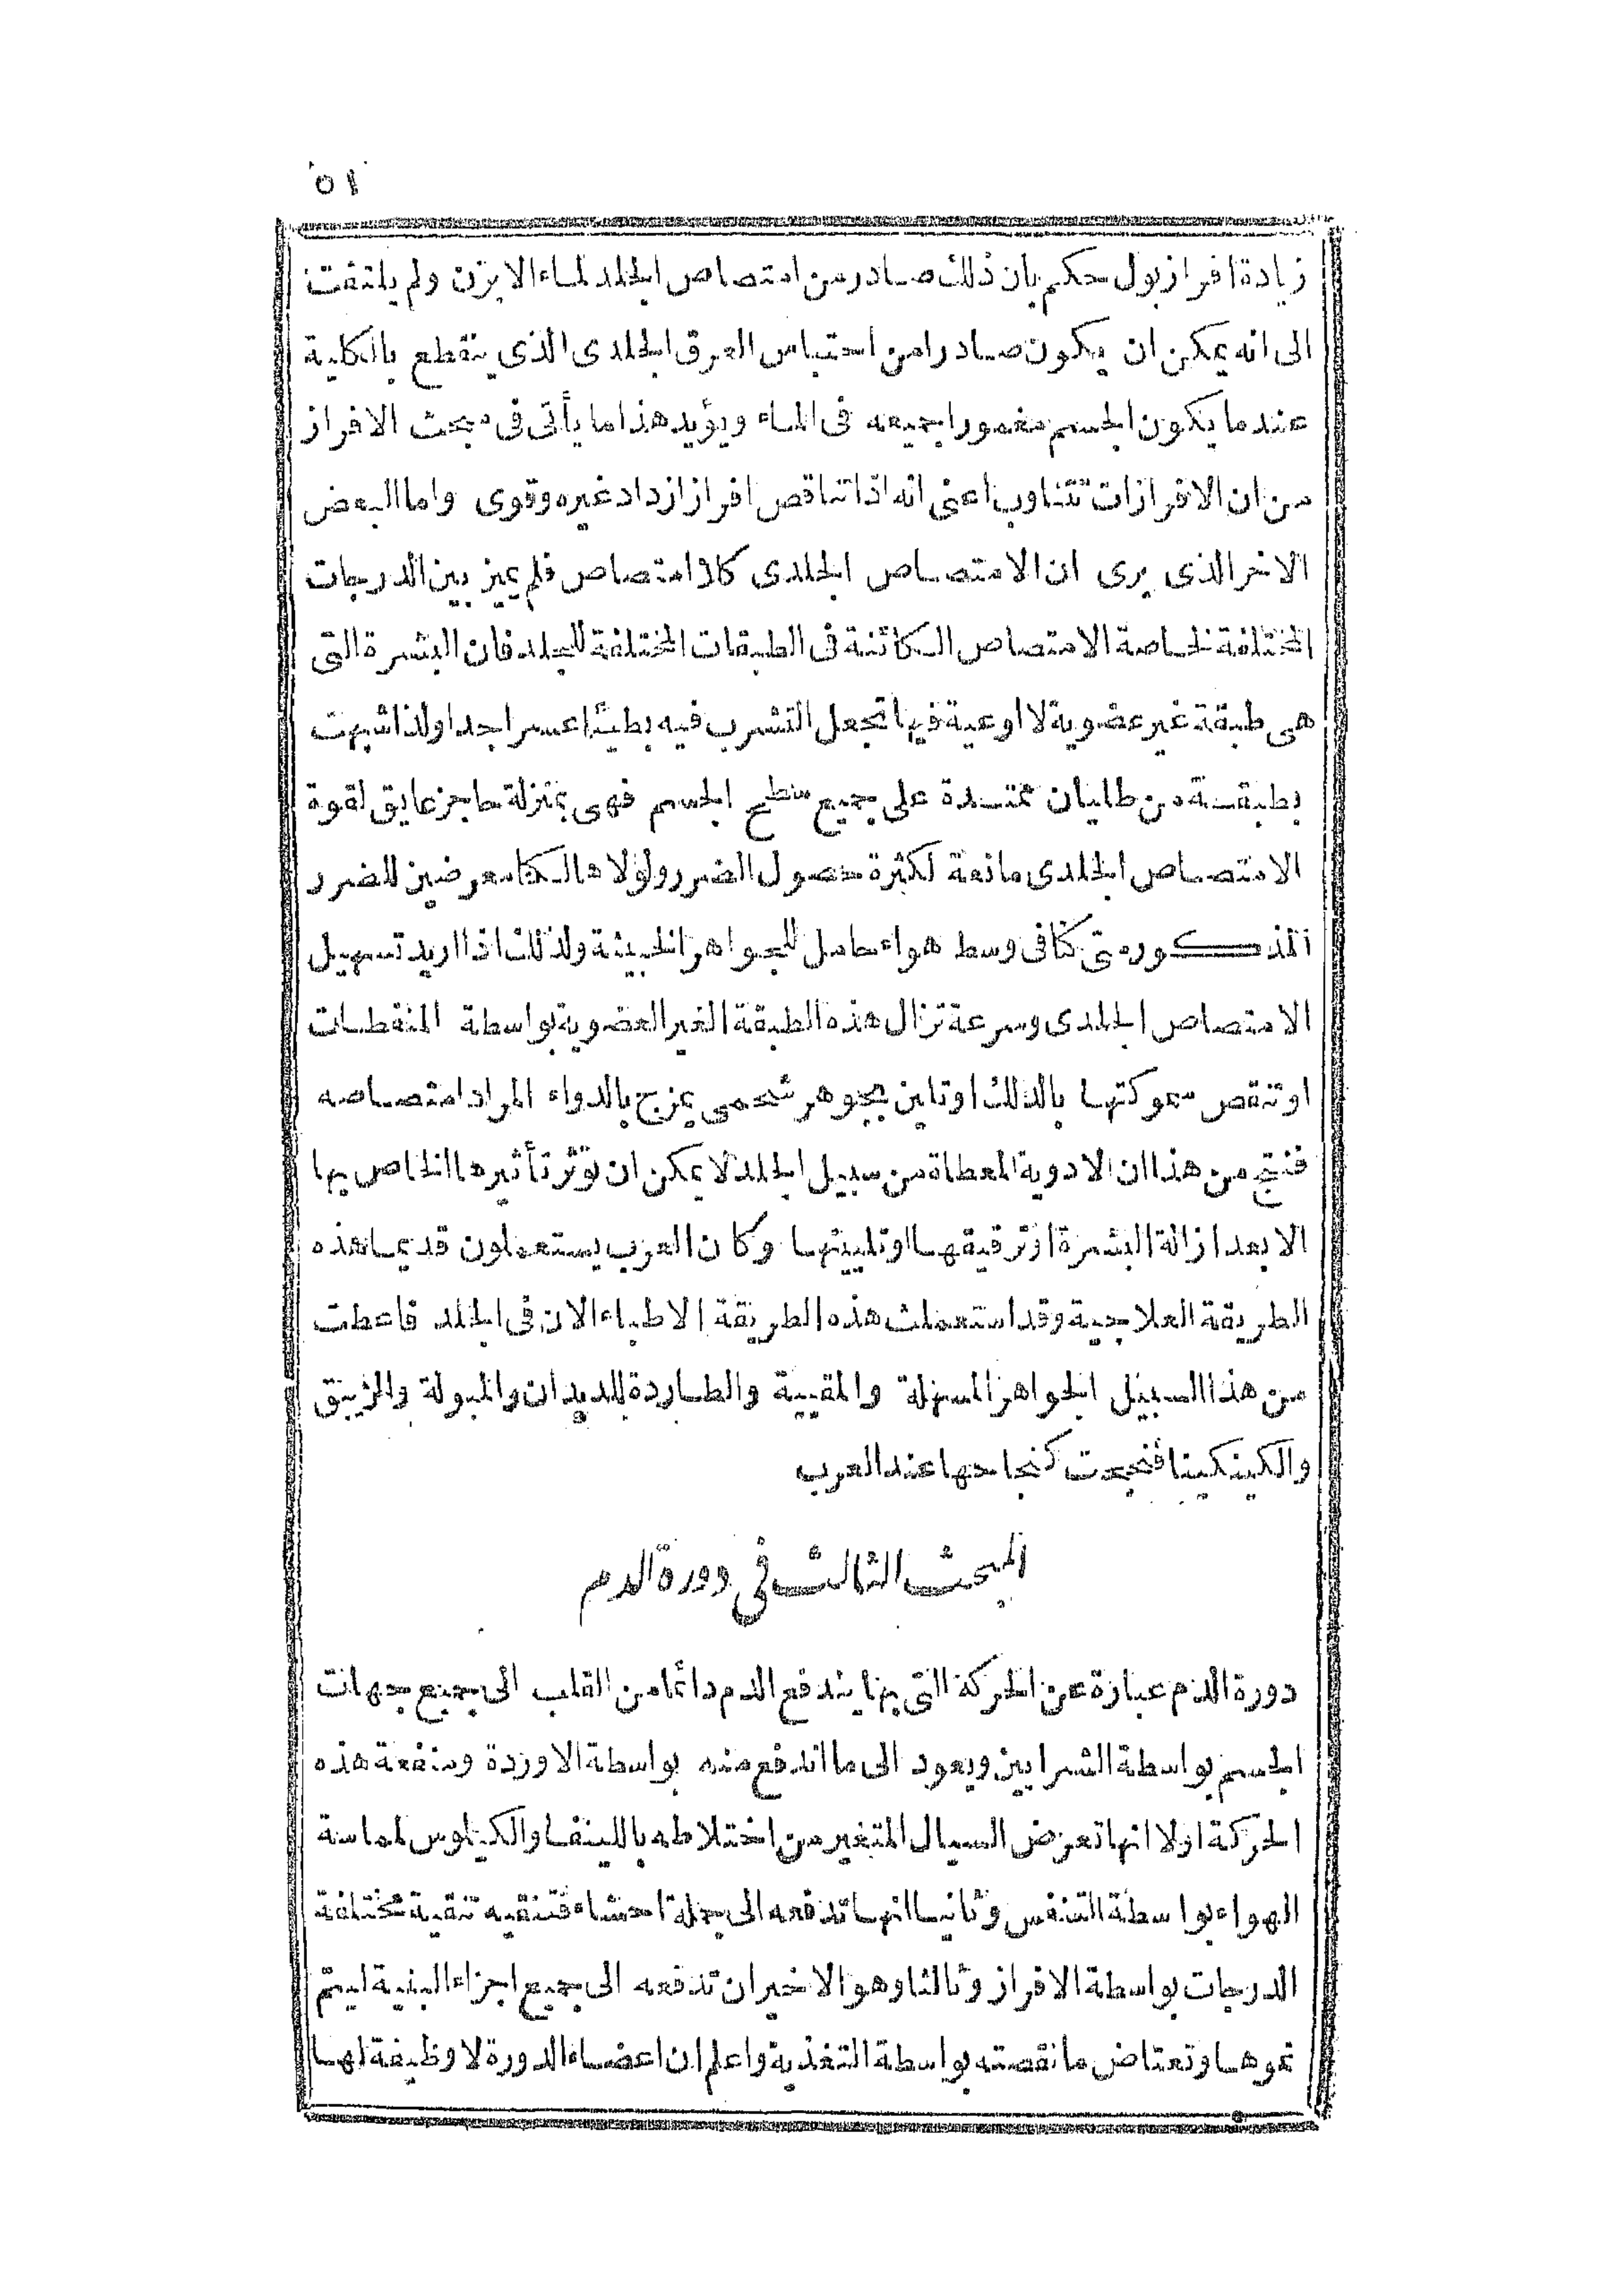 ٥١
زيادة افراز بول حكم بان ذلك صادر من امتصاص الجلد لماء الابزن ولم يلتفت
الى انه يمكن ان يكون صادرا من احتباس العرق الجلدى الذى ينقطع بالكلية
عندما يكون الجسم مغمورا جميعه فى الماء ويؤيد هذا ما يأتى فى مبحث الافراز
من ان الافرازات تتناوب اعنى انه اذا تناقص افراز ازداد غيره وقوى واما البعض
الاخر الذى يرى ان الامتصاص الجلدى كلا امتصاص فلم يميز بين الدرجات
المختلفة لخاصة الامتصاص الكائنة فى الطبقات المختلفة للجلد فان البشرة التى
هى طبقة غير عضوية لا اوعية فيها تجعل التشرب فيه بطيئا عسرا جدا ولذا شبهت
بطبقة من طليان ممتدة على جميع سطح الجسم فهى بمنزلة حاجز عايق لقوة
الامتصاص الجلدى مانعة لكثرة حصول الضرر ولولاها لكنا معرضين للضرر
المذكور متى كنا فى وسط هواء حامل للجواهر الخبيثة ولذلك اذا اريد تسهيل
الامتصاص الجلدى وسرعة تزال هذه الطبقة الغير العضوية بواسطة المنفطات
او تنقص سموكتها بالدلك او تلين بجوهر شحمى يمزج بالدواء المراد امتصاصه
فنتج من هذا ان الادوية المعطاة من سبيل الجلد لا يمكن ان تؤثر تأثيرها الخاص بها
الا بعد ازالة البشرة او ترقيقها او تليينها وكان العرب يستعملون قديما هذه
الطريقة العلاجية وقد استعملت هذه الطريقة الاطباء الان فى الجلد فاعطت
من هذا السبيل الجواهر المسهلة والمقيية والطاردة للديدان والمبولة والزيبق
والكينكينا فنجحت كنجاحها عند العرب
المبحث الثالث فى دورة الدم
دورة الدم عبارة عن الحركة التى بها يندفع الدم دائما من القلب الى جميع جهات
الجسم بواسطة الشرايين ويعود الى ما اندفع منه بواسطة الاوردة ومنفعة هذه
الحركة اولا انها تعرض السيال المتغير من اختلاطه باللينفا والكيلوس لمماسة
الهواء بواسطة التنفس وثانيا انها تدفعه الى جملة احشاء فتنقيه تنقية مختلفة
الدرجات بواسطة الافراز وثالثا وهو الاخير ان تدفعه الى جميع اجزاء البنية ليتم
نموها وتعتاض ما نقصته بواسطة التغذية واعلم ان اعضاء الدورة لا وظيفة لها